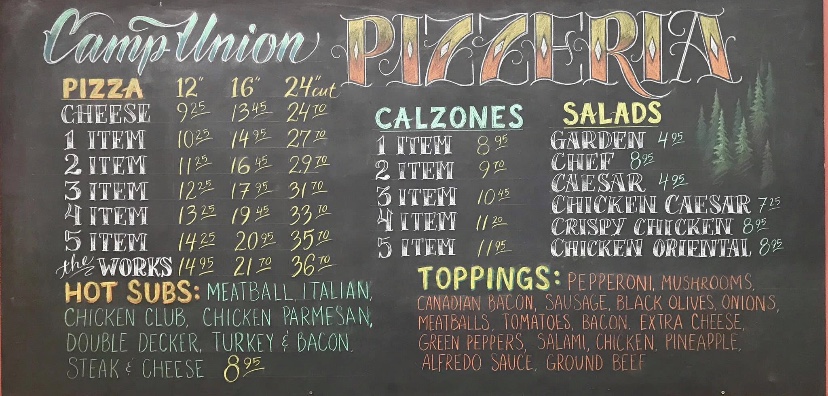 Camp Union PIZZERIA
PIZZA 12" 16" 24"cut
CHEESE 9 25 13 45 24 70
1 ITEM 10 25 14 95 27 70
2 ITEM 11 25 16 45 29 70
3 ITEM 12 25 17 95 31 70
4 ITEM 13 25 19 45 33 70
5 ITEM 14 25 20 95 35 70
the WORKS 14 95 21 70 36 70
HOT SUBS: MEATBALL, ITALIAN,
CHICKEN CLUB, CHICKEN PARMESAN,
DOUBLE DECKER, TURKEY & BACON,
STEAK & CHEESE 8 95
CALZONES
1 ITEM 8 95
2 ITEM 9 70
3 ITEM 10 45
4 ITEM 11 20
5 ITEM 11 95
SALADS
GARDEN 4 95
CHEF 8 95
CAESAR 4 95
CHICKEN CAESAR 7 25
CRISPY CHICKEN 8 95
CHICKEN ORIENTAL 8 95
TOPPINGS: PEPPERONI, MUSHROOMS,
CANADIAN BACON, SAUSAGE, BLACK OLIVES, ONIONS,
MEATBALLS, TOMATOES, BACON, EXTRA CHEESE,
GREEN PEPPERS, SALAMI, CHICKEN, PINEAPPLE,
ALFREDO SAUCE, GROUND BEEF